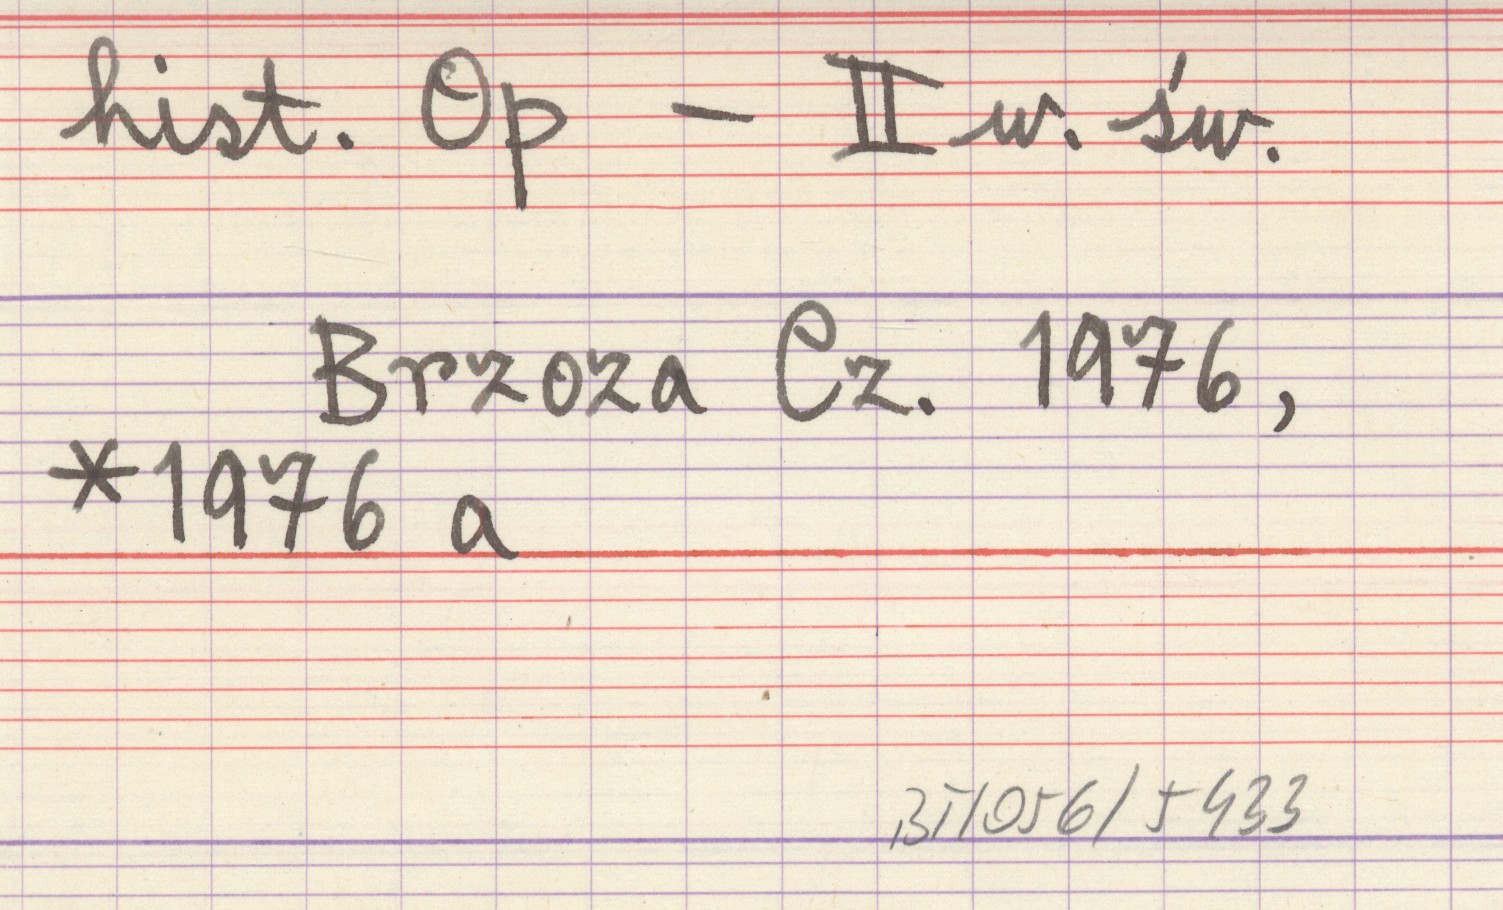 hist. Op - II w. św.
Brzoza Cz. 1976,
*1976 a
BI/056/5433